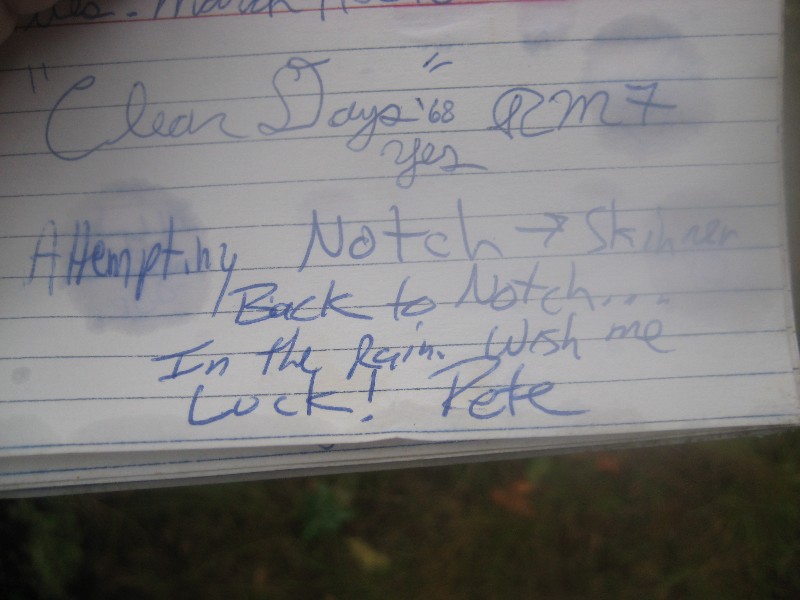 "Clear Days" '68 RM7
Yes
Attempting Notch → Skinner
Back to Notch....
In the Rain. Wish me
Luck! Pete